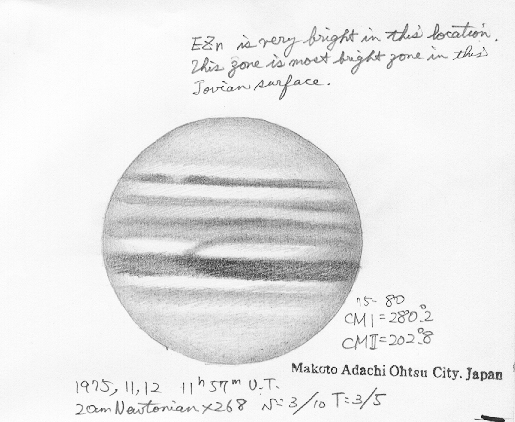 EZn is very bright in this location.
This zone is most bright zone in this
Jovian surface.
75-80
CMI=280.°2
CMII=202.°8
Makoto Adachi Ohtsu City. Japan
1975, 11, 12 11h 57m U.T.
20cm Newtonian ×268 S=3/10 T=3/5